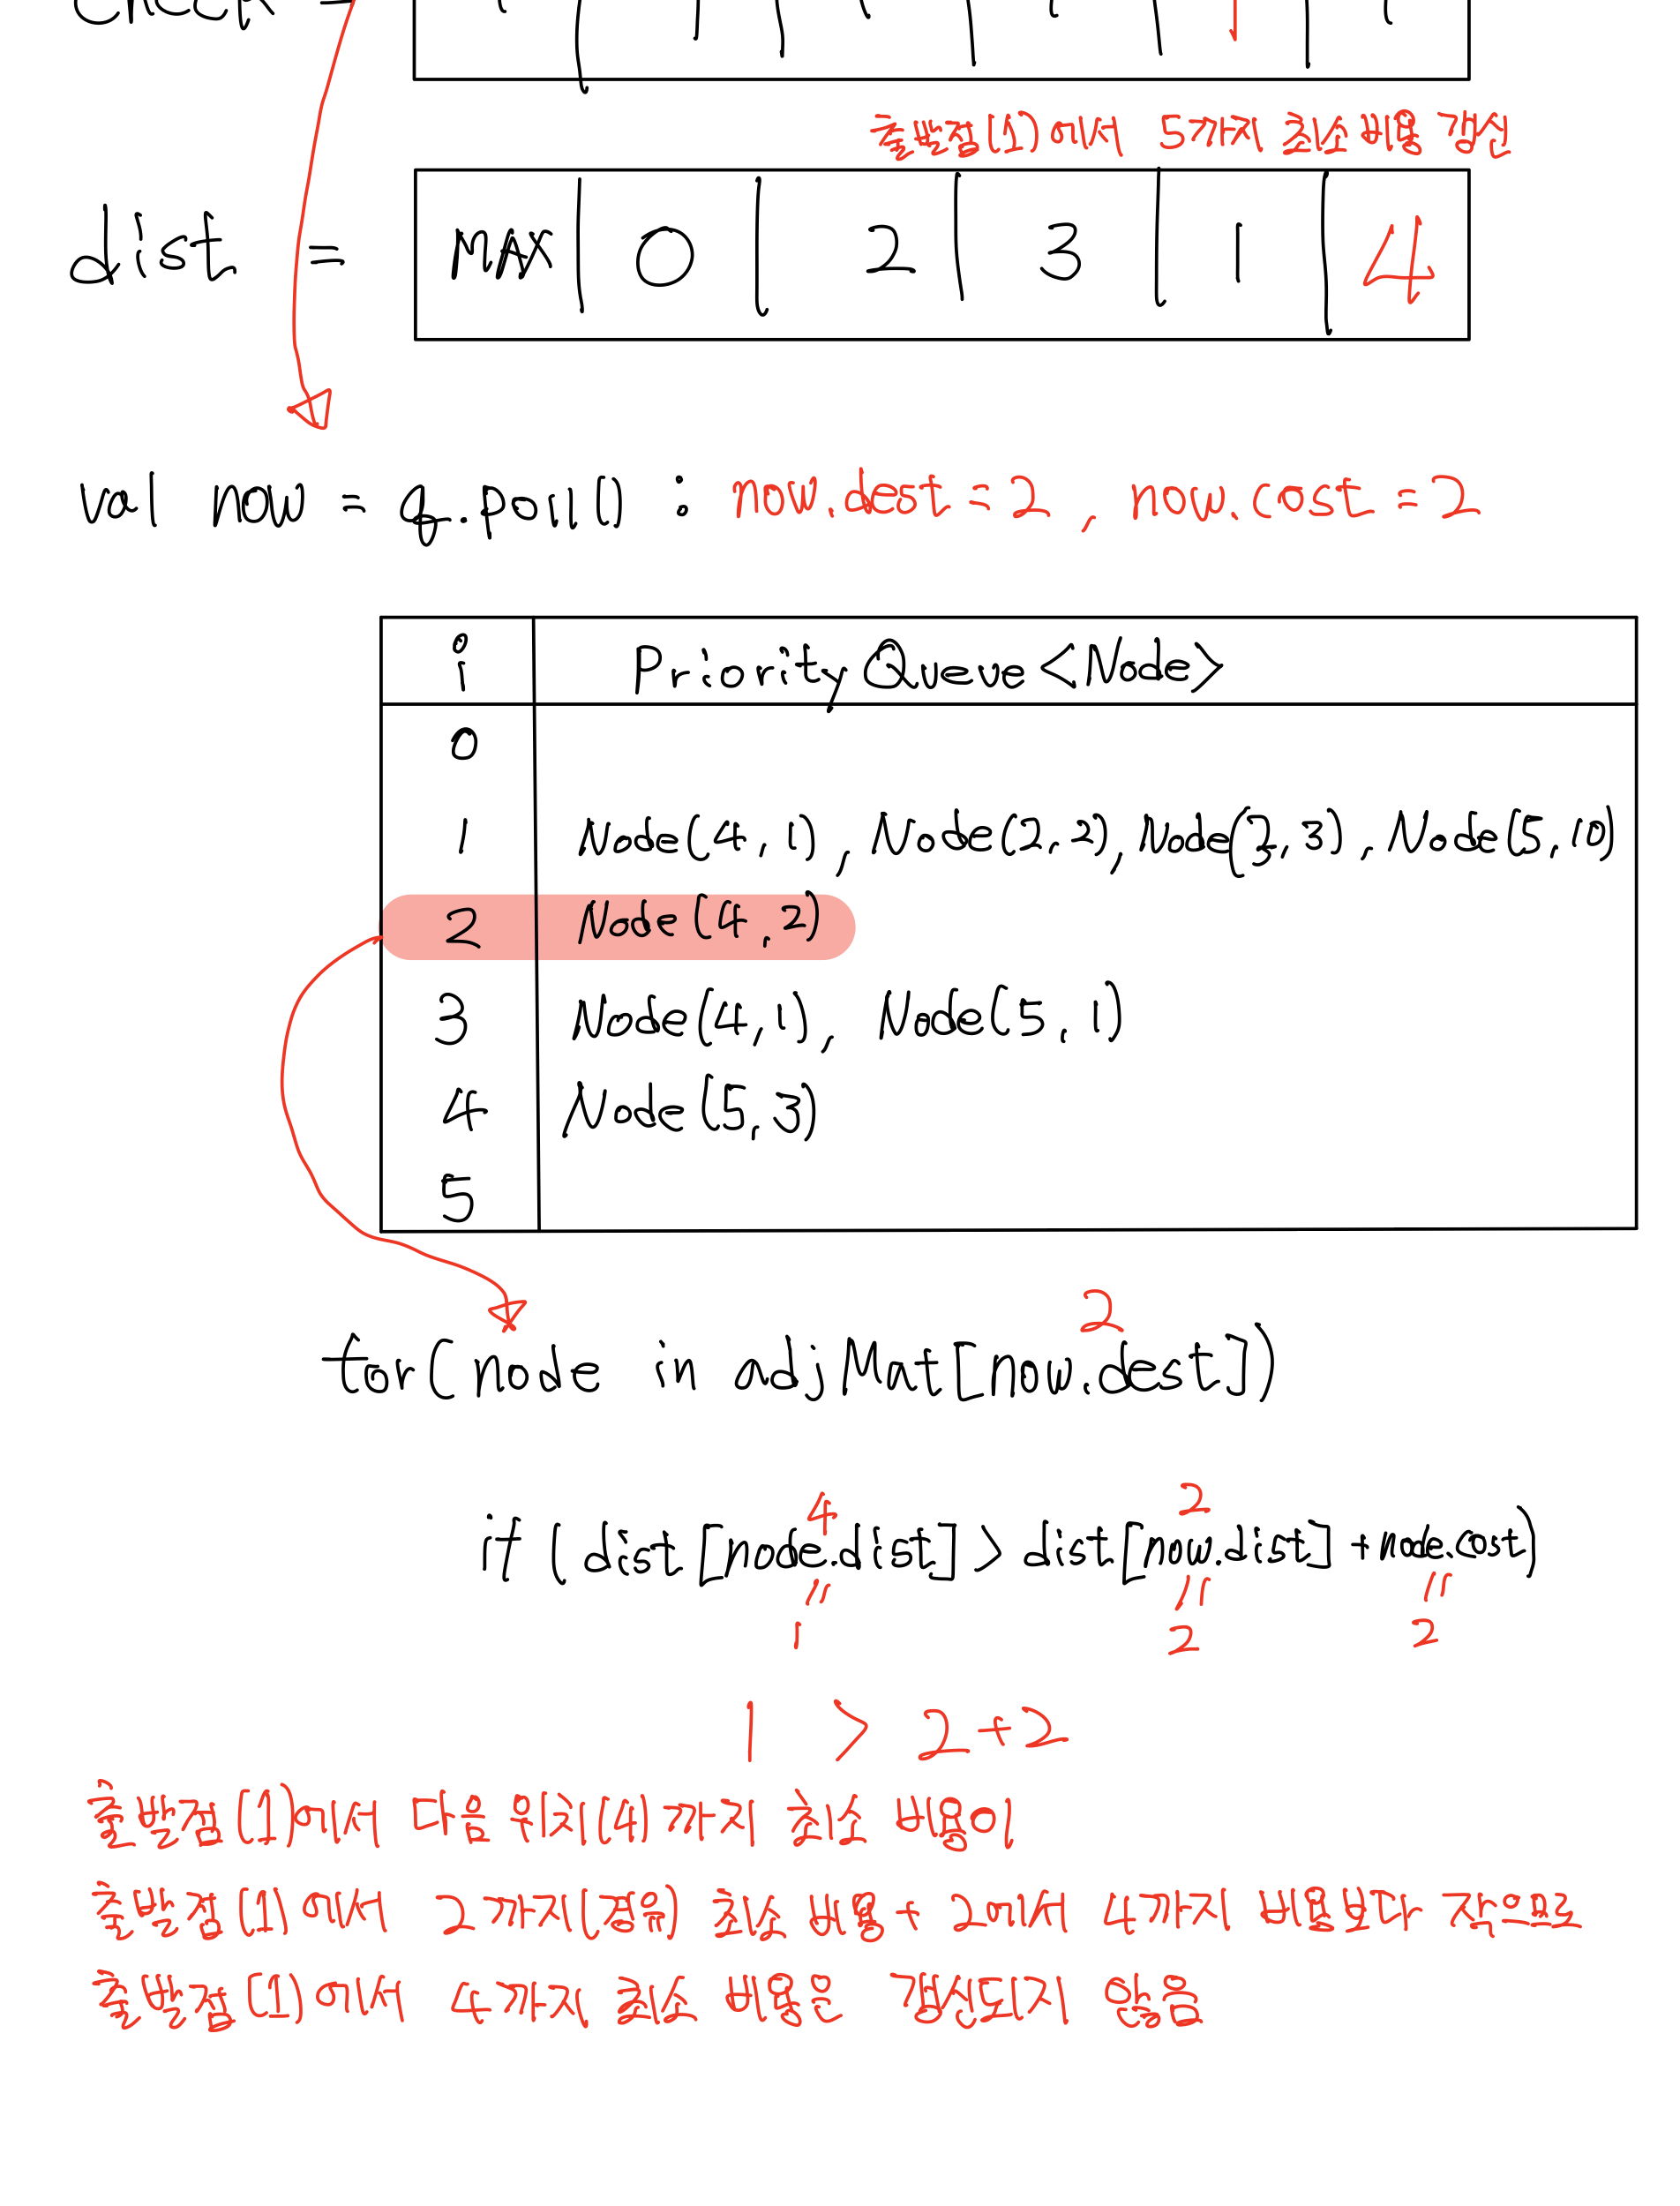 check =
출발점(1)에서 5까지 최소 비용 갱신
dist = MAX 0 2 3 1 4
val now = q.poll() : now.dest = 2, now.cost = 2
i PriorityQueue<Node>
0
1 Node(4, 1), Node(2, 2), Node(3, 3), Node(5, 10)
2 Node(4, 2)
3 Node(4, 1), Node(5, 1)
4 Node(5, 3)
5
2
for(node in adjMat[now.dest])
4 2
if(dist[node.dist] > dist[now.dist] + node.cost)
" " "
1 2 2
1 > 2+2
출발점(1)에서 다음 위치(4)까지 최소 비용이
출발점(1)에서 2까지(경유) 최소 비용 + 2에서 4까지 비용보다 작으므로
출발점(1)에서 4까지 최소 비용은 갱신되지 않음